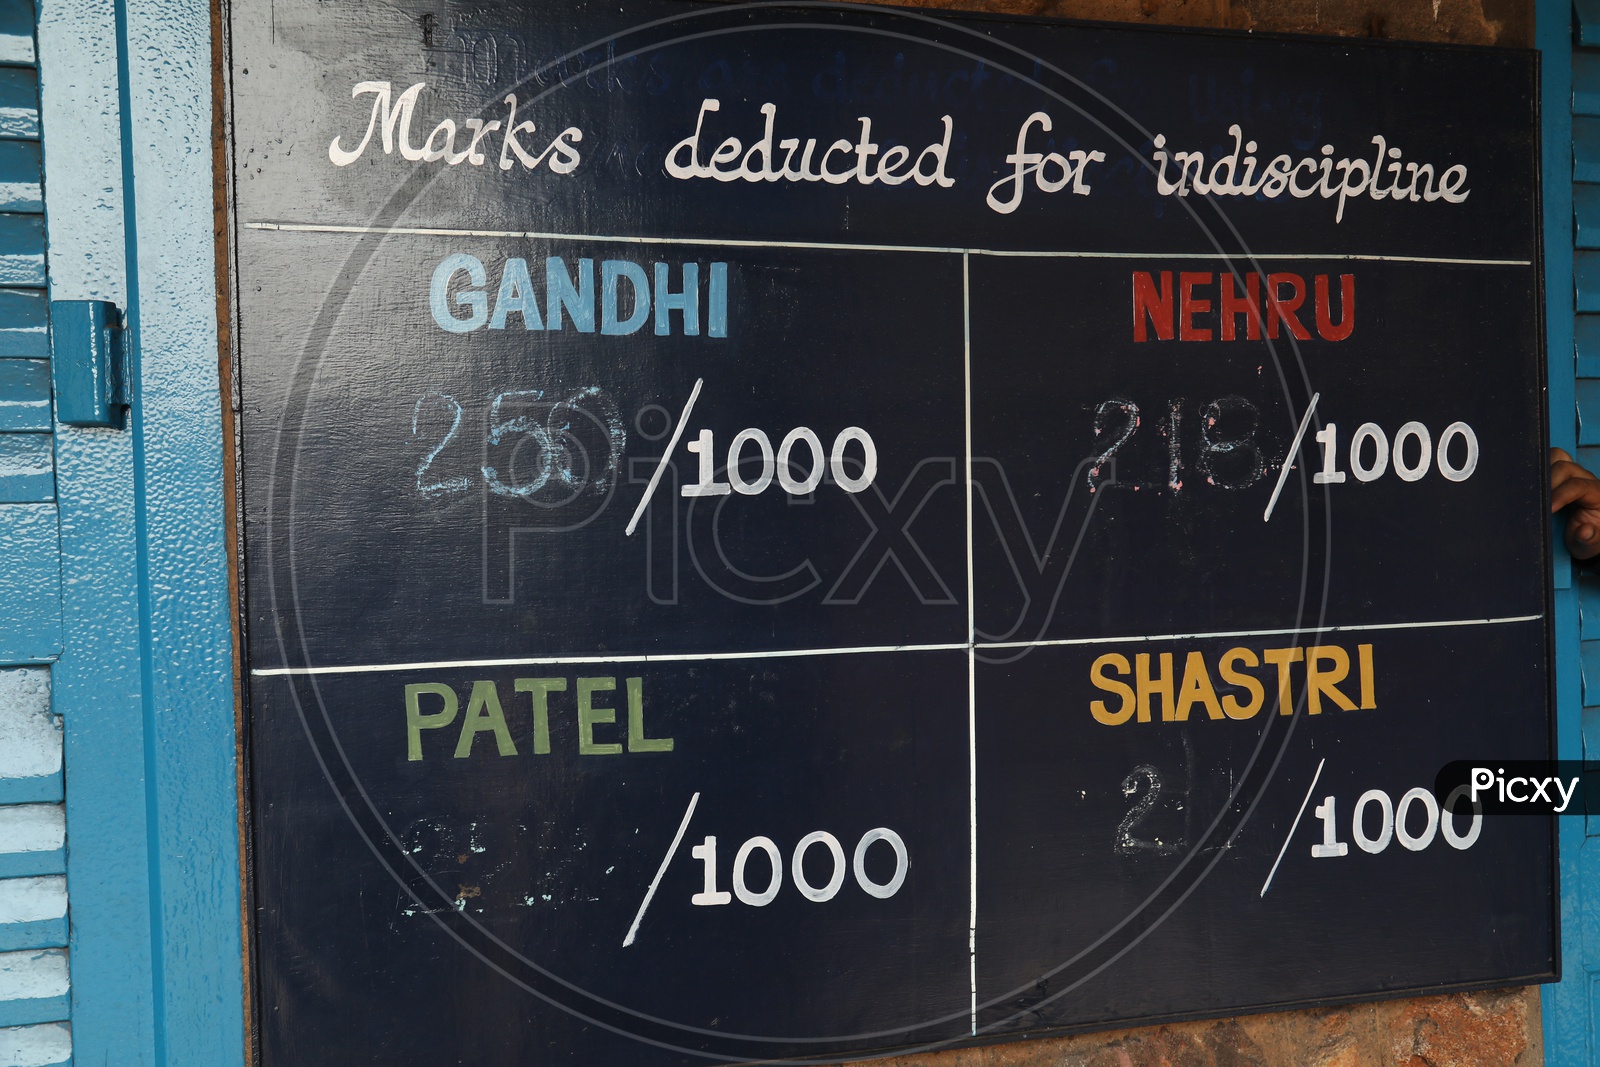 Marks deducted for indiscipline
GANDHI
250/1000
NEHRU
218/1000
PATEL
/1000
SHASTRI
/1000
Picxy
Picxy